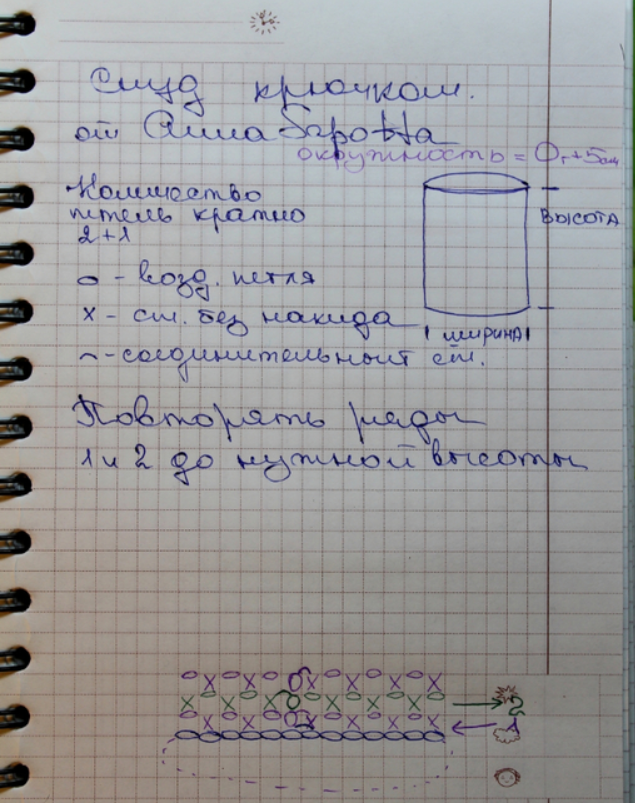 Снуд крючком.
от Анна Баротта
окружность = Ог+5см
Количество
петель кратно
2+1
ВЫСОТА
о - возд. петля
х - ст. без накида
ШИРИНА
⌢ - соединительный ст.
Повторять ряды
1 и 2 до нужной высоты
2
1